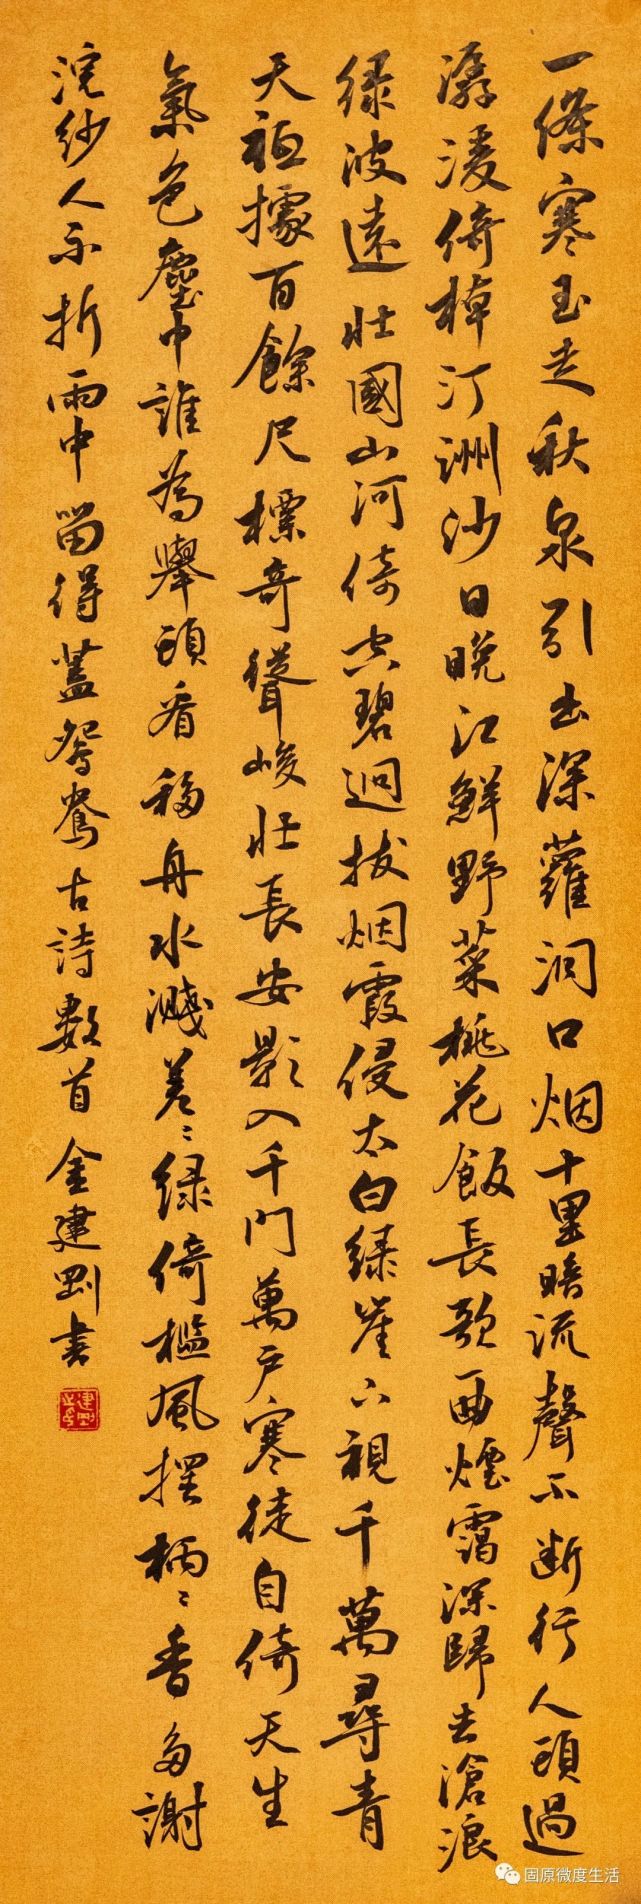 一條寒玉走秋泉引出深蘿洞口烟十里暗流聲不断行人頭過
潺湲倚棹汀洲沙日晚江鮮野菜桃花飯長歌一曲煙靄深歸去滄浪
绿波遠壯國山河倚空碧迥拔烟霞侵太白綠崖下視千萬尋青
天祗據百餘尺標奇聳峻壯長安影入千門萬戶寒徒自倚天生
氣色塵中誰為舉頭看移舟水濺差差緑倚檻風摆柄柄香多謝
浣紗人不折雨中留得蓋鴛鴦古詩數首金建剛书
固原微度生活